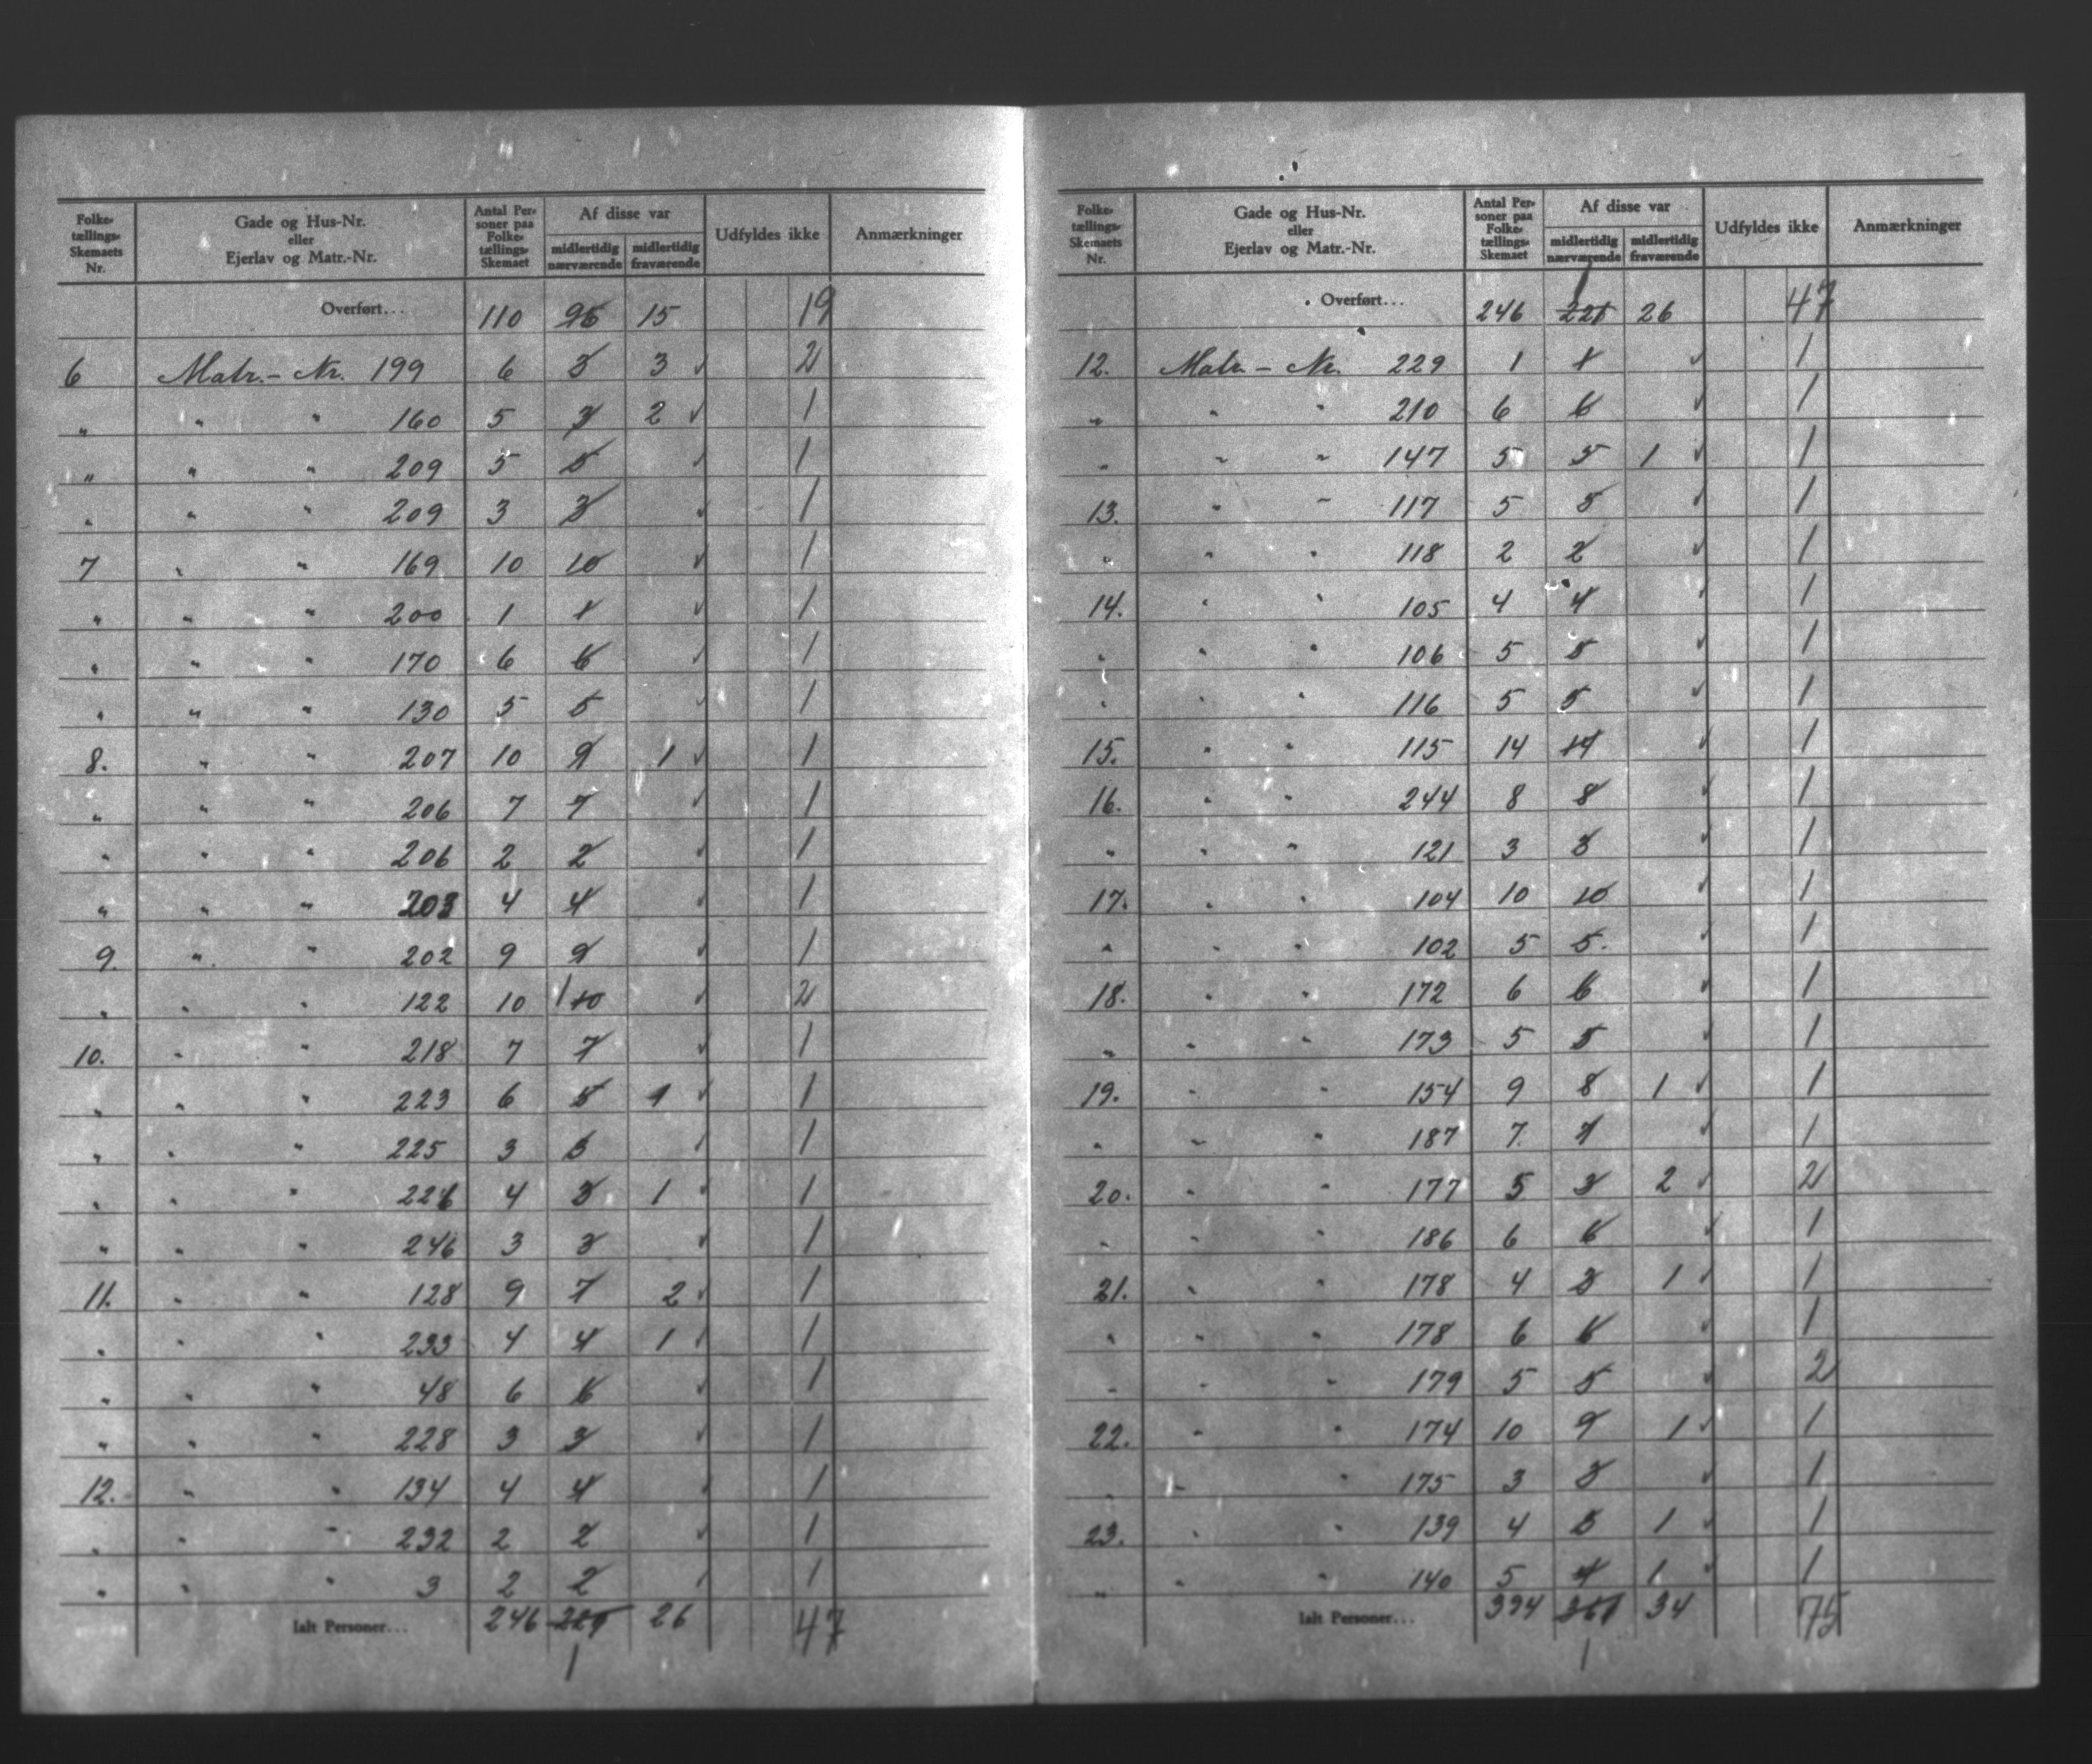 Folke- tællings- Skemaets Nr. | Gade og Hus-Nr. eller Ejerlav og Matr.-Nr. | Antal Per- soner paa Folke- tællings- Skemaet | Af disse var midlertidig nærværende | midlertidig fraværende | Udfyldes ikke | Anmærkninger
Overført... 110 96 15 19
6 Matr.- Nr. 199 6 3 3 ✓ 2
„ " " 160 5 3 2 ✓ 1
„ " " 209 5 5 ✓ 1
„ " " 209 3 3 ✓ 1
7 " " 169 10 10 ✓ 1
„ " " 200 1 1 ✓ 1
„ " " 170 6 6 ✓ 1
„ " " 130 5 5 ✓ 1
8. " " 207 10 9 1 ✓ 1
„ " " 206 7 7 ✓ 1
„ " " 206 2 2 ✓ 1
„ " " 203 4 4 ✓ 1
9. " " 202 9 9 ✓ 1
„ " " 122 10 1 10 ✓ 2
10. " " 218 7 7 ✓ 1
„ " " 223 6 5 1 ✓ 1
„ " " 225 3 3 ✓ 1
„ " " 226 4 3 1 ✓ 1
„ " " 246 3 3 ✓ 1
11. " " 128 9 7 2 ✓ 1
„ " " 233 4 4 1 ✓ 1
„ " " 48 6 6 ✓ 1
„ " " 228 3 3 ✓ 1
12. " " 134 4 4 ✓ 1
„ " " 232 2 2 ✓ 1
„ " " 3 2 2 ✓ 1
Ialt Personer... 246 221 26 47
1
Folke- tællings- Skemaets Nr. | Gade og Hus-Nr. eller Ejerlav og Matr.-Nr. | Antal Per- soner paa Folke- tællings- Skemaet | Af disse var midlertidig nærværende | midlertidig fraværende | Udfyldes ikke | Anmærkninger
1
Overført... 246 221 26 47
12. Matr. - Nr. 229 1 1 ✓ 1
„ " " 210 6 6 ✓ 1
„ " " 147 5 5 1 ✓ 1
13. " " 117 5 5 ✓ 1
„ " " 118 2 2 ✓ 1
14. " " 105 4 4 ✓ 1
„ " " 106 5 5 ✓ 1
„ " " 116 5 5 ✓ 1
15. " " 115 14 14 ✓ 1
16. " " 244 8 8 ✓ 1
„ " " 121 3 3 ✓ 1
17. " " 104 10 10 ✓ 1
„ " " 102 5 5. ✓ 1
18. " " 172 6 6 ✓ 1
„ " " 173 5 5 ✓ 1
19. " " 154 9 8 1 ✓ 1
„ " " 187 7. 7 ✓ 1
20. " " 177 5 3 2 ✓ 2
„ " " 186 6 6 ✓ 1
21. " " 178 4 3 1 ✓ 1
„ " " 178 6 6 ✓ 1
„ " " 179 5 5 ✓ 2
22. " " 174 10 9 1 ✓ 1
„ " " 175 3 3 ✓ 1
23. " " 139 4 3 1 ✓ 1
„ " " 140 5 4 1 ✓ 1
Ialt Personer... 394 361 34 75
1